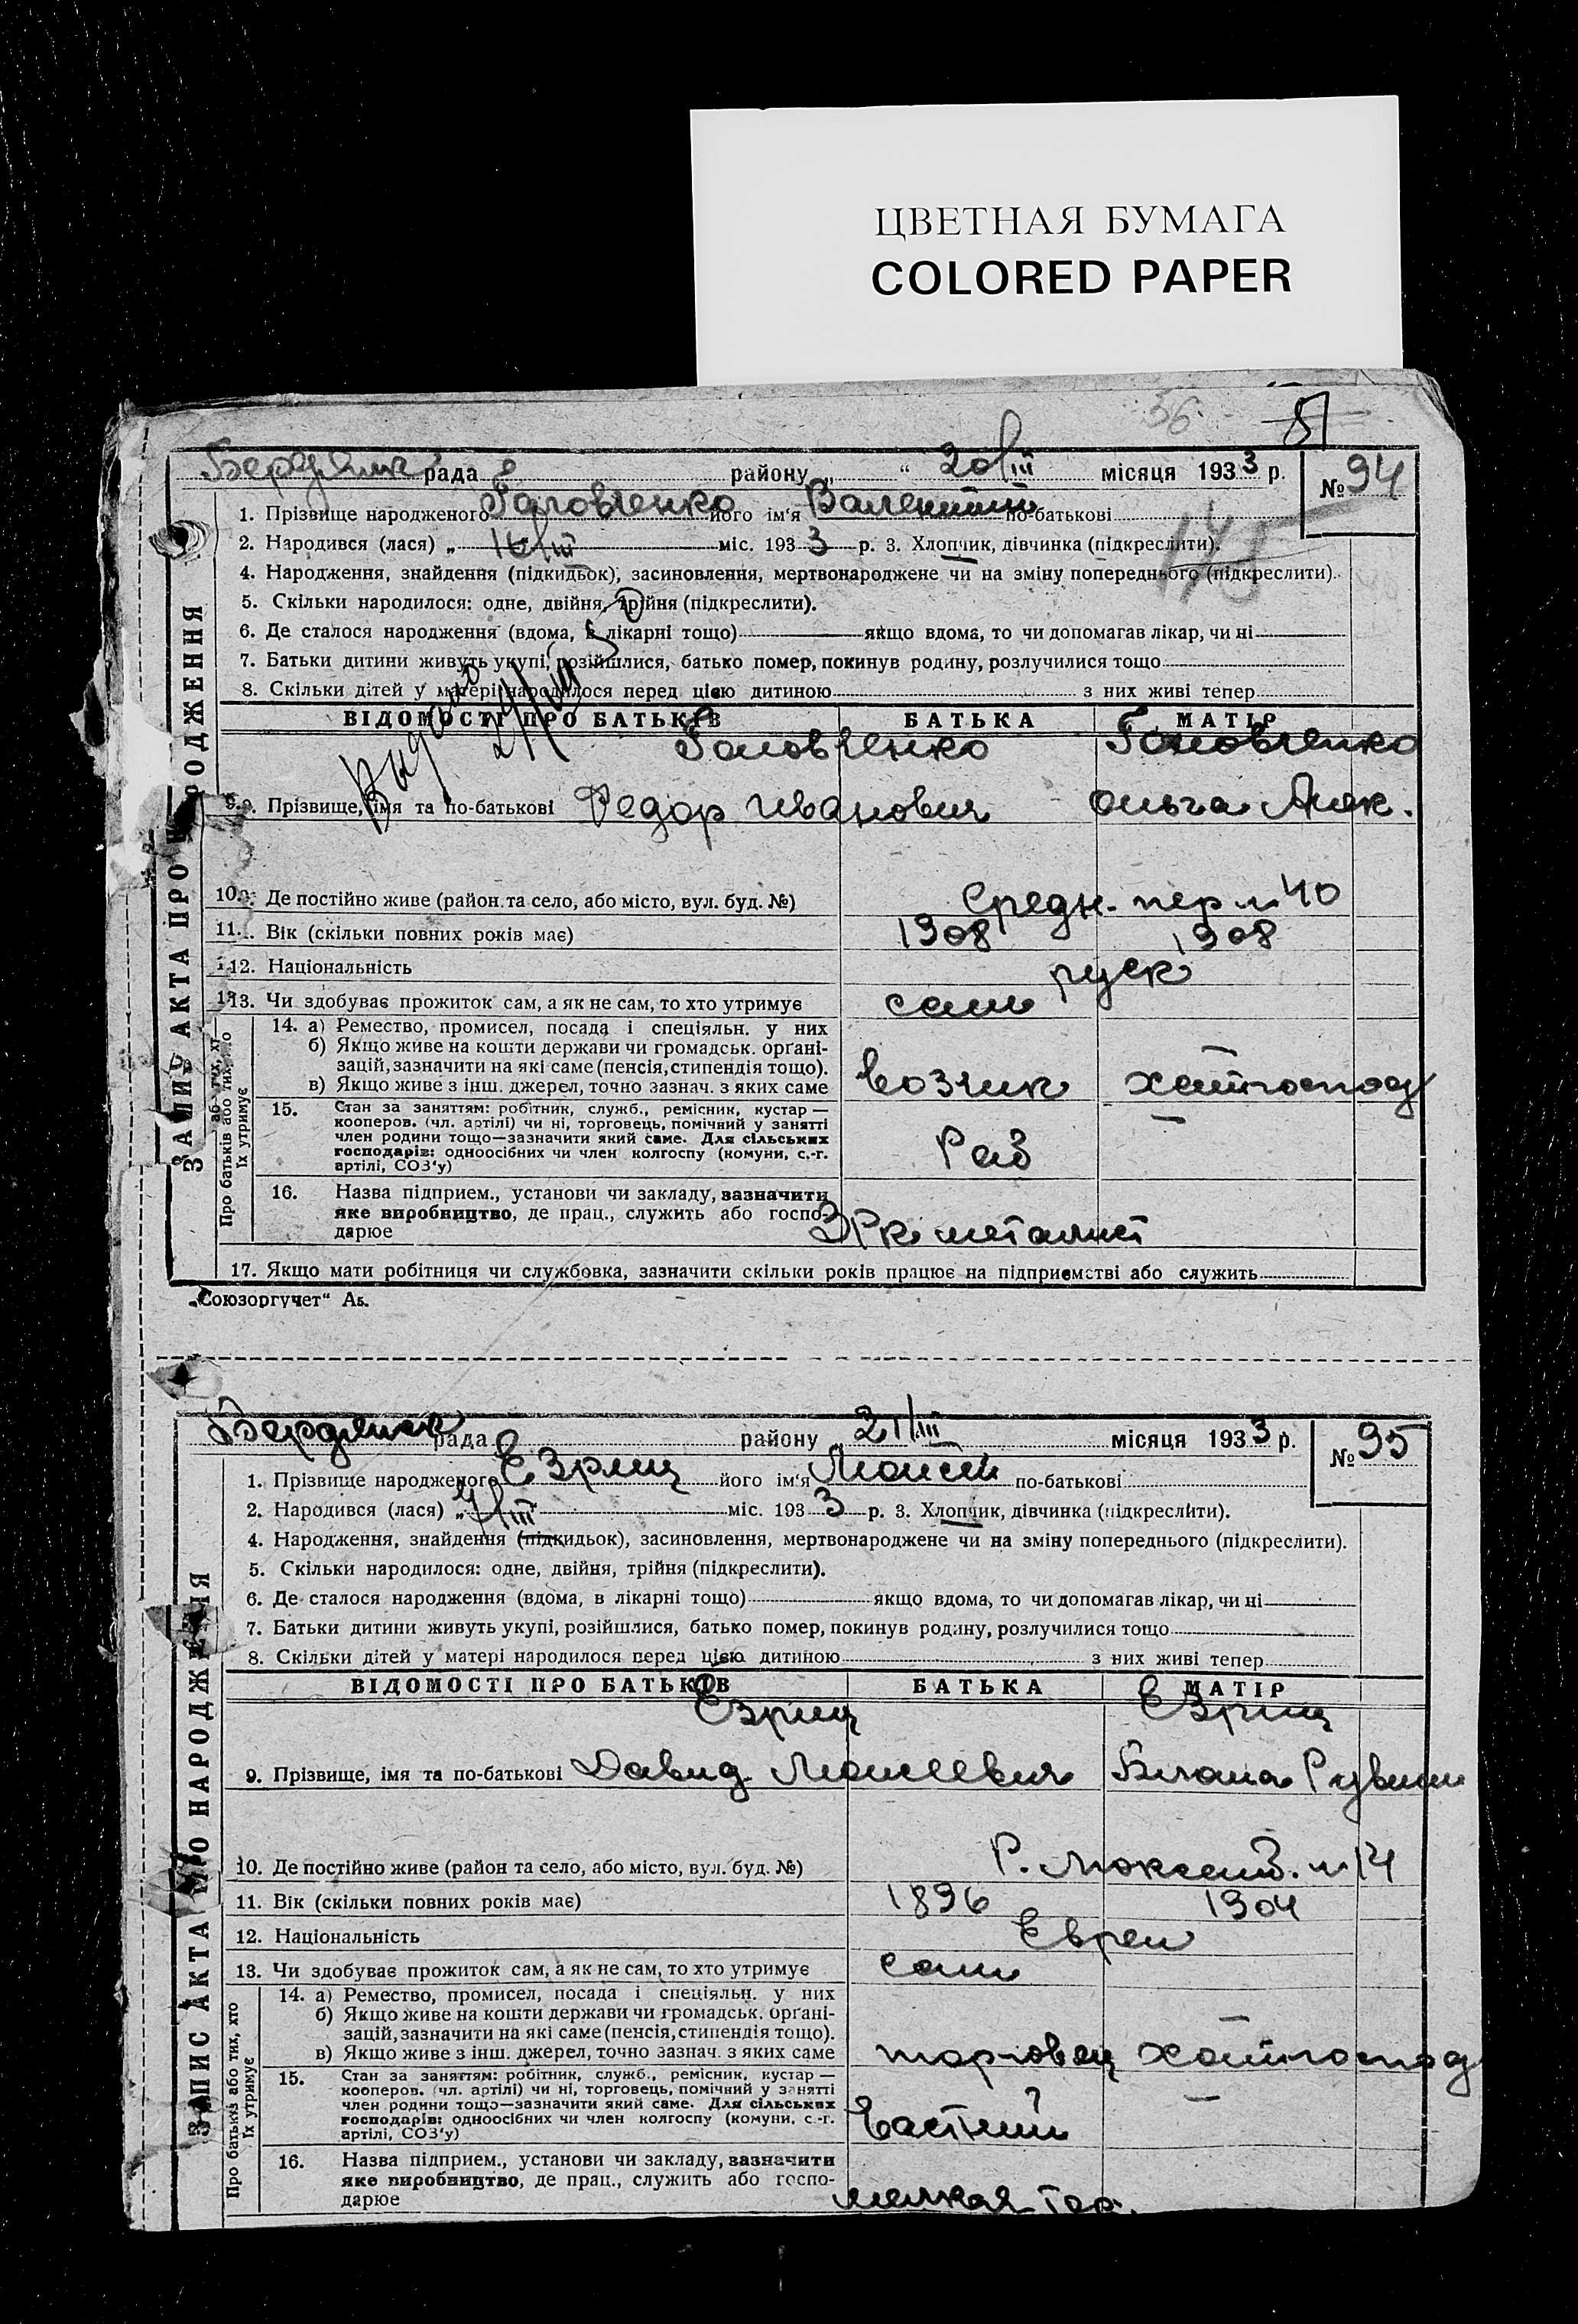 ЦВЕТНАЯ БУМАГА
COLORED PAPER
56 51
Бердянск рада району „ “ 20/III місяця 1933 р. № 94
1. Прізвище народженого Головченко його ім'я Валентин по-батькові
2. Народився (лася) „ 16/III міс. 1933 р. 3. Хлопчик, дівчинка (підкреслити).
4. Народження, знайдення (підкидьок), засиновлення, мертвонароджене чи на зміну попереднього (підкреслити).
5. Скільки народилося: одне, двійня, трійня (підкреслити).
6. Де сталося народження (вдома, в лікарні тощо) якщо вдома, то чи допомагав лікар, чи ні
7. Батьки дитини живуть укупі, розійшлися, батько помер, покинув родину, розлучилися тощо
8. Скільки дітей у матері народилося перед цією дитиною з них живі тепер
ВІДОМОСТІ ПРО БАТЬКІВ БАТЬКА МАТІР
Головченко Головченко
9. Прізвище, імя та по-батькові Федор Иванович Ольга Алек.
10. Де постійно живе (район та село, або місто, вул. буд. №) Средн. пер 40
11. Вік (скільки повних років має) 1908 1908
12. Національність руск
13. Чи здобуває прожиток сам, а як не сам, то хто утримує сам
14. а) Ремество, промисел, посада і спеціяльн. у них
б) Якщо живе на кошти держави чи громадськ. орґані-
зацій, зазначити на які саме (пенсія, стипендія тощо).
в) Якщо живе з інш. джерел, точно зазнач. з яких саме возчик хатнгоспод
15. Стан за заняттям: робітник, служб., ремісник, кустар —
кооперов. (чл. артілі) чи ні, торговець, помічний у занятті
член родини тощо—зазначити який саме. Для сільських
господарів: одноосібних чи член колгоспу (комуни, с.-г.
артілі, СОЗ'у) Раб —
16. Назва підприєм., установи чи закладу, зазначити
яке виробництво, де прац., служить або госпо-
дарює ЗРк металист
17. Якщо мати робітниця чи службовка, зазначити скільки років працює на підприємстві або служить
ЗАПИС АКТА ПРО НАРОДЖЕННЯ
Про батьків або тих, хто їх утримує
„Союзоргучет“
Бердянск рада району 21/III місяця 1933 р. № 95
1. Прізвище народженого Езриц його ім'я Моисей по-батькові
2. Народився (лася) „ 4/III міс. 1933 р. 3. Хлопчик, дівчинка (підкреслити).
4. Народження, знайдення (підкидьок), засиновлення, мертвонароджене чи на зміну попереднього (підкреслити).
5. Скільки народилося: одне, двійня, трійня (підкреслити).
6. Де сталося народження (вдома, в лікарні тощо) якщо вдома, то чи допомагав лікар, чи ні
7. Батьки дитини живуть укупі, розійшлися, батько помер, покинув родину, розлучилися тощо
8. Скільки дітей у матері народилося перед цією дитиною з них живі тепер
ВІДОМОСТІ ПРО БАТЬКІВ БАТЬКА МАТІР
Езриц Езриц
9. Прізвище, імя та по-батькові Давид Моисеевич Рувим
10. Де постійно живе (район та село, або місто, вул. буд. №) Р. Люксемб. 14
11. Вік (скільки повних років має) 1896 1904
12. Національність Евреи
13. Чи здобуває прожиток сам, а як не сам, то хто утримує сам
14. а) Ремество, промисел, посада і спеціяльн. у них
б) Якщо живе на кошти держави чи громадськ. орґані-
зацій, зазначити на які саме (пенсія, стипендія тощо).
в) Якщо живе з інш. джерел, точно зазнач. з яких саме торговец хатнгоспод
15. Стан за заняттям: робітник, служб., ремісник, кустар —
кооперов. (чл. артілі) чи ні, торговець, помічний у занятті
член родини тощо—зазначити який саме. Для сільських
господарів: одноосібних чи член колгоспу (комуни, с.-г.
артілі, СОЗ'у) частний —
16. Назва підприєм., установи чи закладу, зазначити
яке виробництво, де прац., служить або госпо-
дарює мелкая
ЗАПИС АКТА ПРО НАРОДЖЕННЯ
Про батьків або тих, хто їх утримує